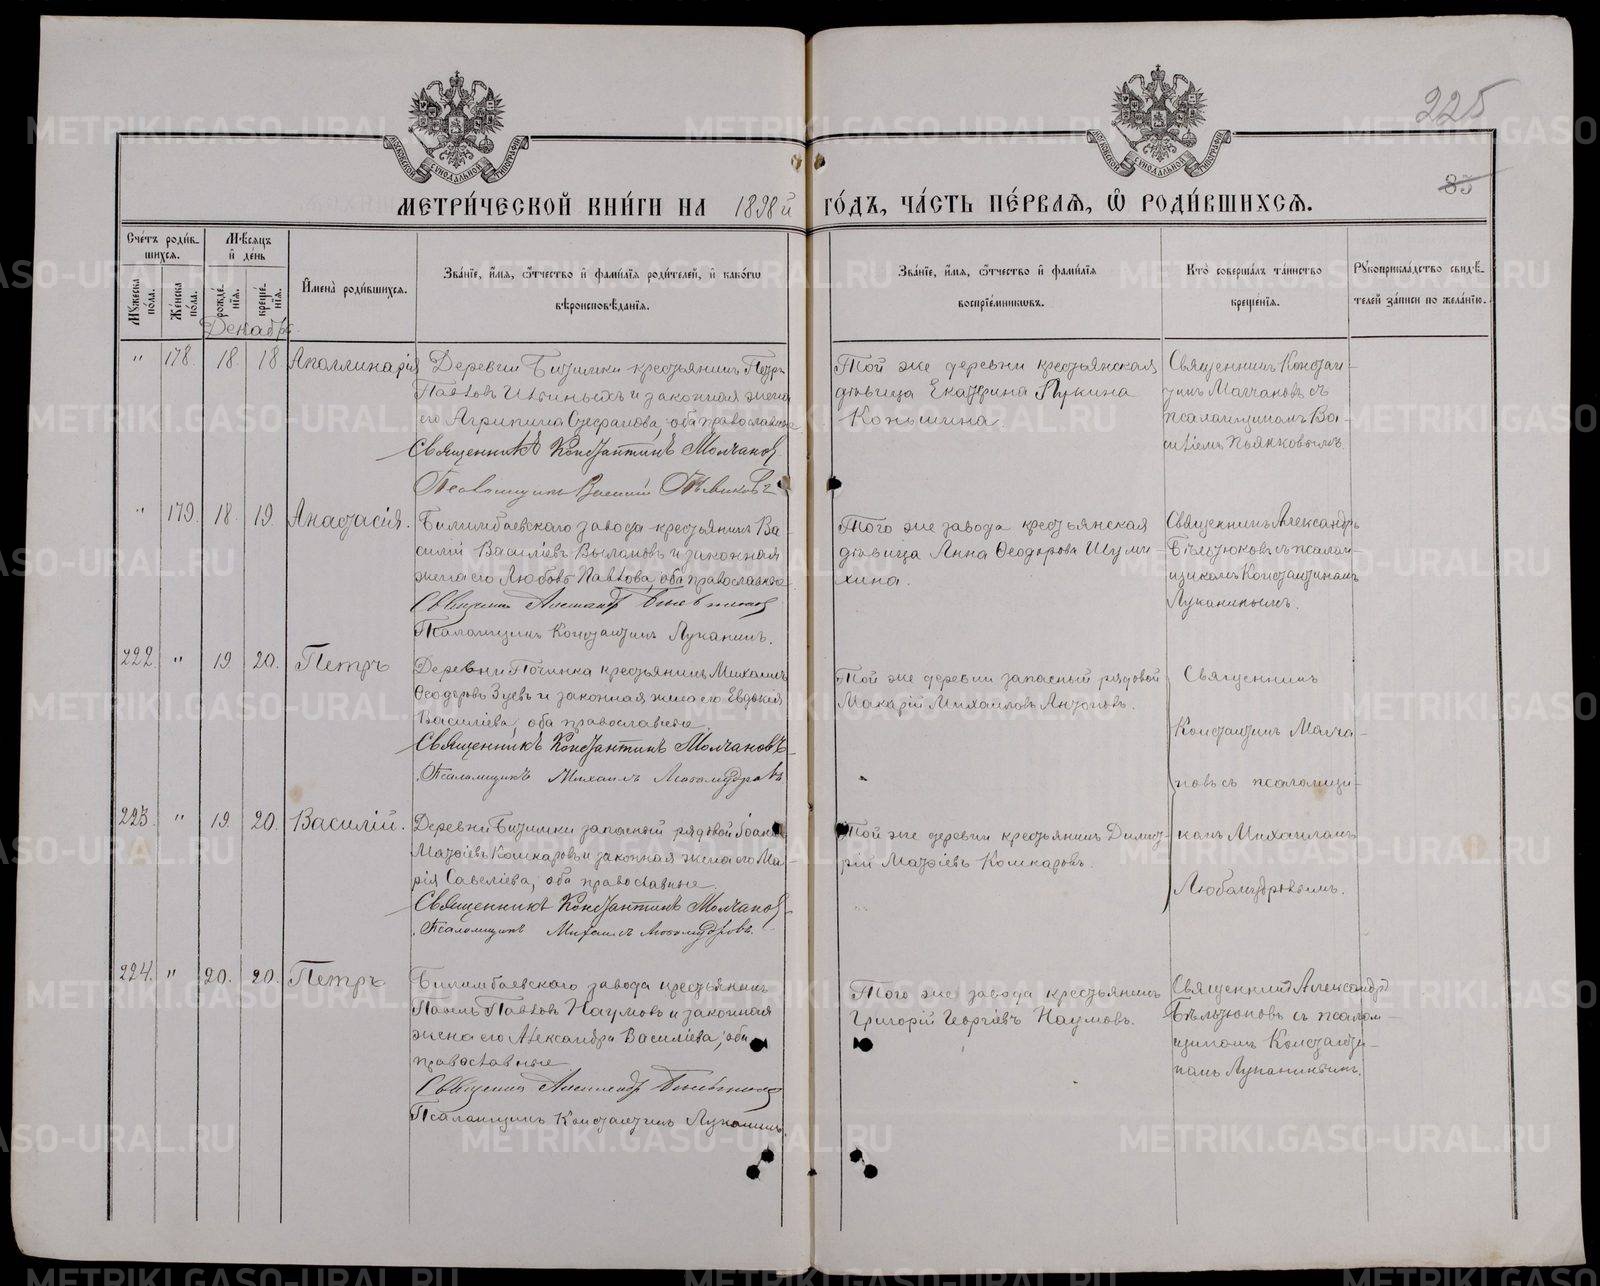 225
85
МОСКОВСКОЙ СѴНОДАЛЬНОЙ ТИПОГРАФІИ
МОСКОВСКОЙ СѴНОДАЛЬНОЙ ТИПОГРАФІИ
МЕТРИ́ЧЕСКОЙ КНИ́ГИ НА 1898й ГО́ДЪ, ЧА́СТЬ ПЕ́РВАѦ, Ѡ҆ РОДИ́ВШИХСѦ.
Сче́тъ роди́в-
шихсѧ.
Мꙋ́жеска по́ла.
Же́нска по́ла.
Мѣ́сѧцъ
и҆ де́нь
рожде́-нїѧ.
креще́-нїѧ.
Декабрь
И҆мена̀ роди́вшихсѧ.
Зва́нїе, и҆́мѧ, ѻ҆́тчество и҆ фами́лїѧ роди́телей, и҆ како́гѡ
вѣроисповѣ́данїѧ.
Зва́нїе, и҆́мѧ, ѻ҆́тчество и҆ фами́лїѧ
воспрїе́мникѡвъ.
Кто̀ соверша́лъ та́инство
креще́нїѧ.
Рꙋкоприкла́дство свидѣ́-
телей за́писи по жела́нїю.
" 178 18 18 Аполлинарія
Деревни Битимки крестьянинъ Петръ
Павловъ Ильиныхъ и законная жена
его Агрипина Евграфова, оба православные
Священникъ Константинъ Молчановъ
Псаломщикъ Василій Пьянковъ
Той же деревни крестьянская
дѣвица Екатерина
Коньшина.
Священникъ Констан-
тинъ Молчановъ съ
псаломщикомъ Ва-
силіемъ Пьянковымъ
" 179. 18. 19. Анастасія.
Билимбаевскаго завода крестьянинъ Ва-
силій Васильевъ и законная
жена его Любовь Павлова, оба православные
Священникъ Александръ
Псаломщикъ Константинъ Луканинъ.
Того же завода крестьянская
дѣвица Анна Ѳеодорова Шуми-
хина.
Священникъ Александръ
Бѣльтюковъ съ псалом-
щикомъ Константиномъ
Луканинымъ.
222. " 19 20. Петръ
Деревни Починка крестьянинъ Михаилъ
Ѳеодоровъ Зуевъ и законная жена его Евдокія
Василіева, оба православные
Священникъ Константинъ Молчановъ
Псаломщикъ Михаилъ Любомудровъ
Той же деревни запасный рядовой
Макарій Михаиловъ Антоновъ.
Священникъ
Константинъ Молча-
новъ съ псаломщи-
комъ Михаиломъ
Любомудровымъ.
223. " 19. 20. Василій.
Деревни Битимки запасный рядовой Іоаннъ
Матѳіевъ Кошкаровъ и законная жена его Ма-
рія Савеліева, оба православные.
Священникъ Константинъ Молчановъ
Псаломщикъ Михаилъ Любомудровъ.
Той же деревни крестьянинъ Димит-
рій Матѳіевъ Кошкаровъ.
224. " 20. 20. Петръ
Билимбаевскаго завода крестьянинъ
Павелъ Павловъ Наумовъ и законная
жена его Александра Василіева, оба
православные
Священникъ Александръ
Псаломщикъ Константинъ Луканинъ
Того же завода крестьянинъ
Григорій Георгіевъ Наумовъ.
Священникъ Александръ
Бѣльтюковъ съ псалом-
щикомъ Константи-
номъ Луканинымъ.
METRIKI.GASO-URAL.RU